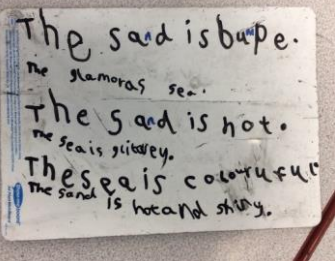 The sand is bumpe.
The glamoras sea.
The sand is hot.
The sea is glitterey.
The sea is colouruful
The sand is hot and shiny.